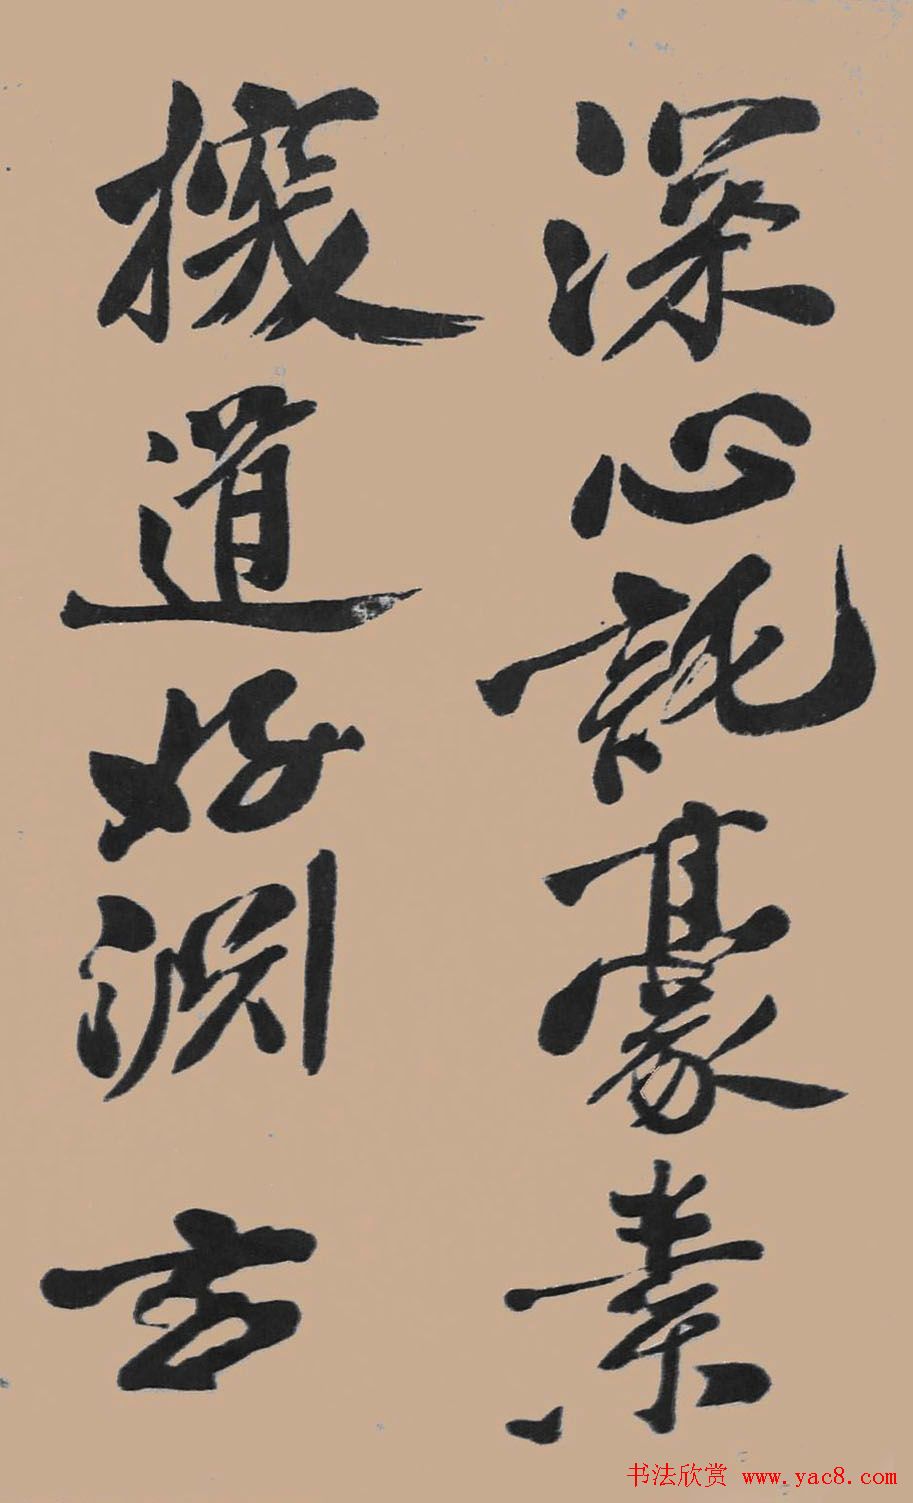 深心託豪素
探道好淵玄
书法欣赏 www.yac8.com